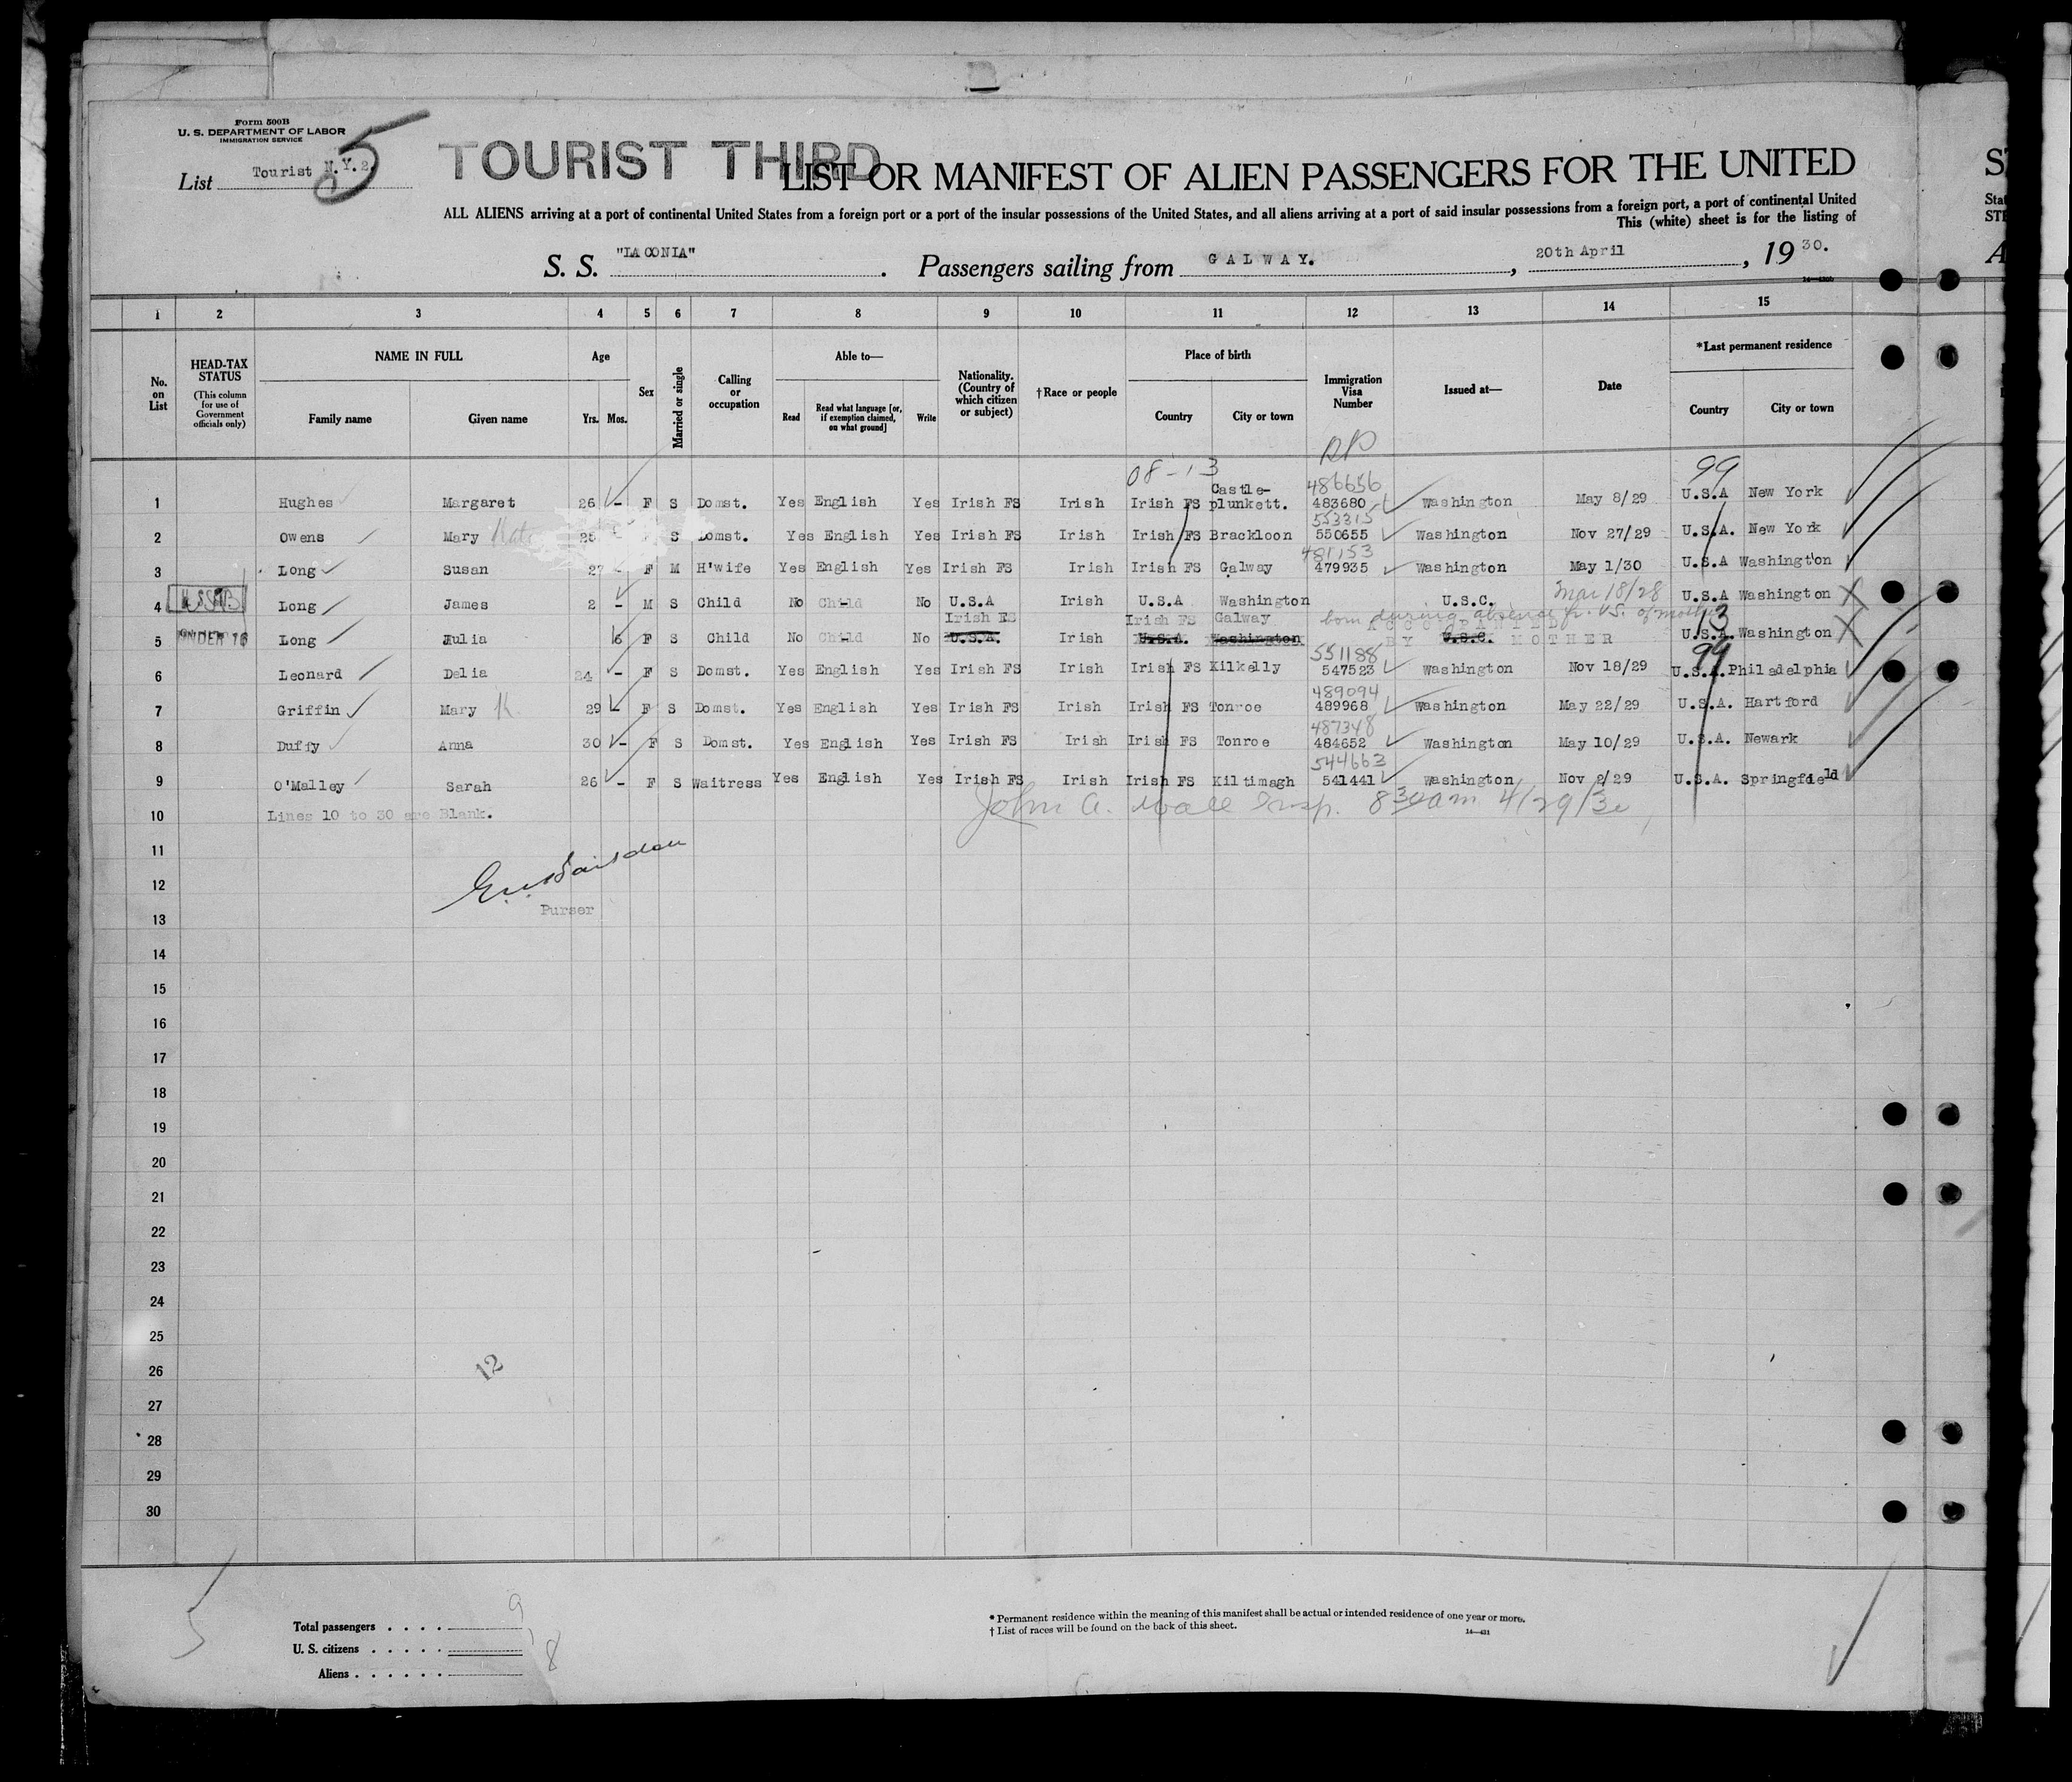 Form 500B
U. S. DEPARTMENT OF LABOR
IMMIGRATION SERVICE
List Tourist N.Y.2. 5
TOURIST THIRD
LIST OR MANIFEST OF ALIEN PASSENGERS FOR THE UNITED
ALL ALIENS arriving at a port of continental United States from a foreign port or a port of the insular possessions of the United States, and all aliens arriving at a port of said insular possessions from a foreign port, a port of continental United
This (white) sheet is for the listing of
S. S. "LACONIA". Passengers sailing from GALWAY., 20th April, 1930.
1 2 3 4 5 6 7 8 9 10 11 12 13 14 15
No. on List
HEAD-TAX STATUS
(This column for use of Government officials only)
NAME IN FULL
Family name Given name
Age
Yrs. Mos.
Sex
Married or single
Calling or occupation
Able to—
Read
Read what language [or, if exemption claimed, on what ground]
Write
Nationality. (Country of which citizen or subject)
†Race or people
Place of birth
Country City or town
Immigration Visa Number
Issued at—
Date
*Last permanent residence
Country City or town
08-13 99
486656
1 Hughes Margaret 26 - F S Domst. Yes English Yes Irish FS Irish Irish FS Castle-plunkett. 483680 Washington May 8/29 U.S.A New York
553315
2 Owens Mary S Domst. Yes English Yes Irish FS Irish Irish FS Brackloon 550655 Washington Nov 27/29 U.S.A. New York
481153
3 Long Susan 27 - F M H'wife Yes English Yes Irish FS Irish Irish FS Galway 479935 Washington May 1/30 U.S.A Washington
4 Long James 2 - M S Child No Child No U.S.A Irish U.S.A Washington U.S.C. Mar 18/28 U.S.A Washington
Irish FS Irish FS Galway born during absence fr. U.S. of mother 13
5 UNDER 16 Long Julia 6 F S Child No Child No U.S.A. Irish U.S.A. Washington U.S.C. U.S.A. Washington
ACCOMPANIED BY MOTHER
551188 99
6 Leonard Delia 24 - F S Domst. Yes English Yes Irish FS Irish Irish FS Kilkelly 547523 Washington Nov 18/29 U.S.A. Philadelphia
489094
7 Griffin Mary K. 29 - F S Domst. Yes English Yes Irish FS Irish Irish FS Tonroe 489968 Washington May 22/29 U.S.A. Hartford
487348
8 Duffy Anna 30 - F S Domst. Yes English Yes Irish FS Irish Irish FS Tonroe 484652 Washington May 10/29 U.S.A. Newark
544663
9 O'Malley Sarah 26 - F S Waitress Yes English Yes Irish FS Irish Irish FS Kiltimagh 541441 Washington Nov 2/29 U.S.A. Springfield
10 Lines 10 to 30 are Blank.
John A. Insp. 8 30 am 4/29/30
11
12
Purser
13
14
15
16
17
18
19
20
21
22
23
24
25
26
12
27
28
29
30
Total passengers . . . . 9
U. S. citizens . . . . . 1
Aliens . . . . . . 8
* Permanent residence within the meaning of this manifest shall be actual or intended residence of one year or more.
† List of races will be found on the back of this sheet.
14—431